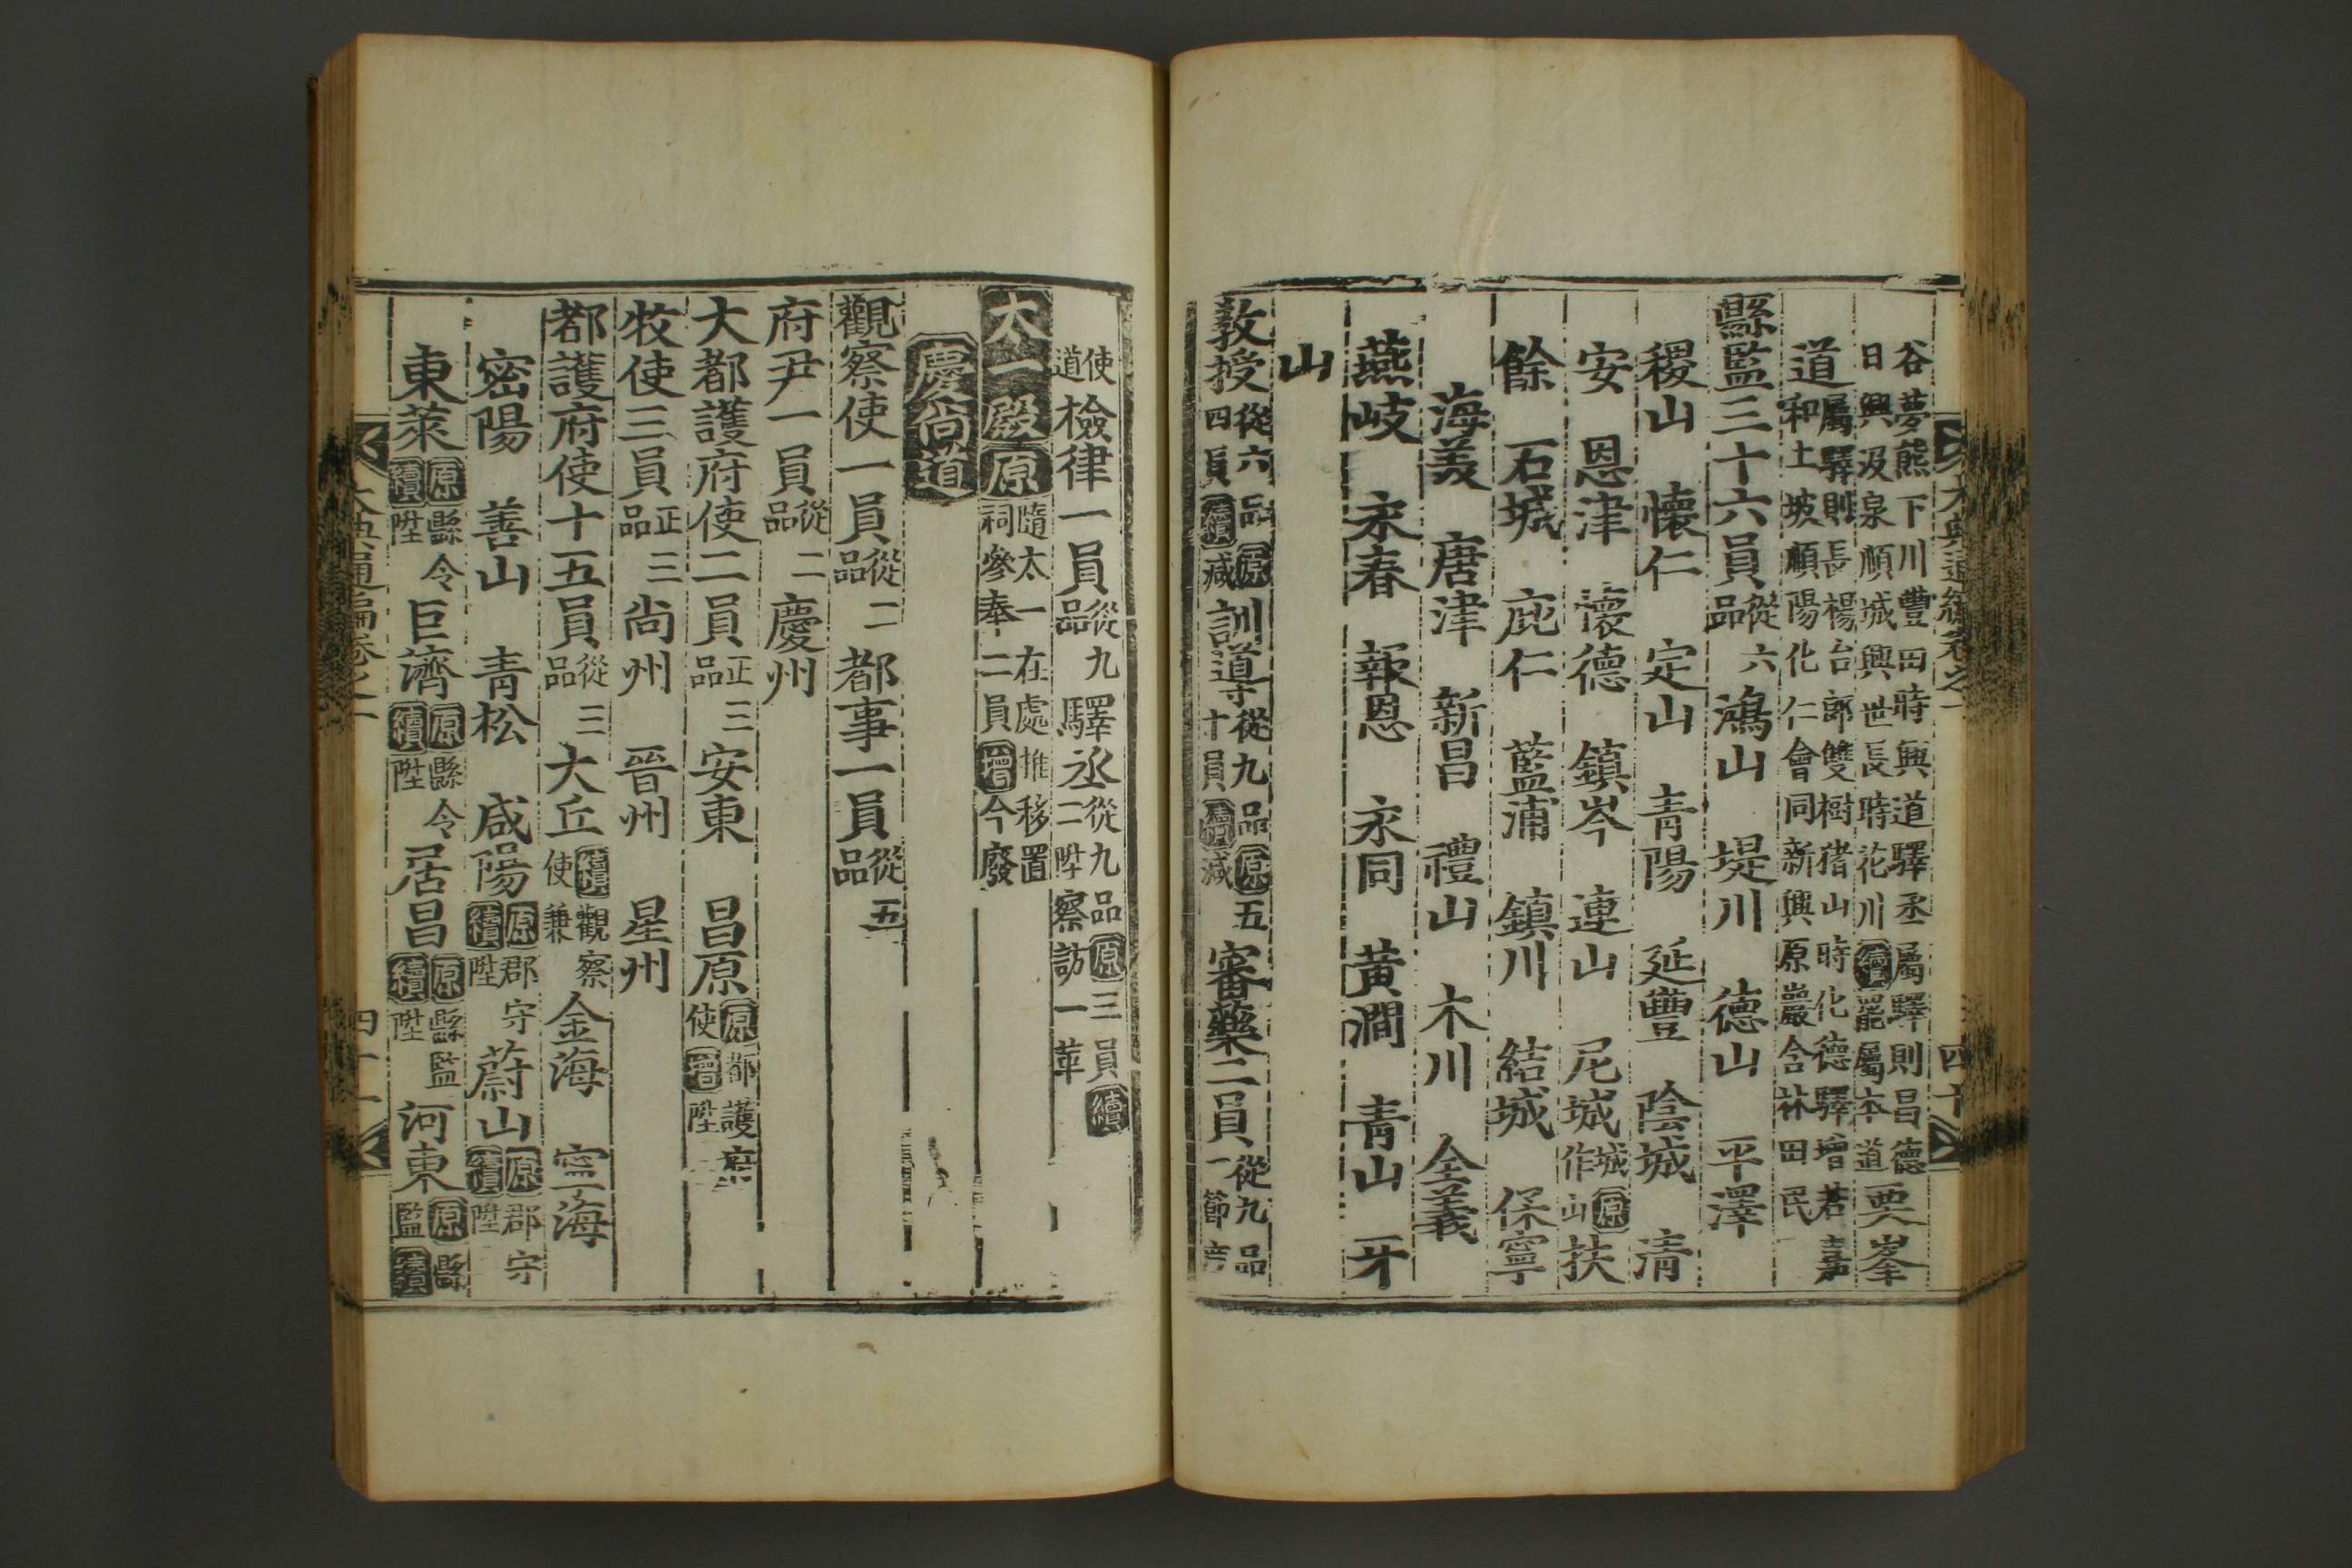 大典通編卷之一
四十
谷夢熊下川豐田時興道驛丞屬驛則昌德
日興汲泉順城興世長時花川續罷屬本道栗峯
道屬驛則長楊台郎雙樹猪山時化德驛增若嘉
和土坡順陽化仁會同新興原巖含林田民
縣監三十六員從六品鴻山 堤川 德山 平澤
稷山 懷仁 定山 青陽 延豐 陰城 清
安 恩津 懷德 鎮岑 連山 尼城原城作山 扶
餘 石城 庇仁 藍浦 鎮川 結城 保寧
海美 唐津 新昌 禮山 木川 全義
燕岐 永春 報恩 永同 黃澗 青山 牙
山
教授從六品原四員續減訓導從九品原五十員續減審藥二員從九品一節度
使道檢律一員從九品驛丞從九品原三員續二陞察訪一革
太一殿原隨太一在處推移置祠參奉二員增今廢
慶尚道
觀察使一員從二品都事一員從五品
府尹一員從二品慶州
大都護府使二員正三品安東 昌原原都護府使增陞
牧使三員正三品尚州 晉州 星州
都護府使十五員從三品大丘續觀察使兼金海 寧海
密陽 善山 青松 咸陽原郡守續陞蔚山原郡守續陞
東萊原縣令續陞巨濟原縣令續陞居昌原縣監續陞河東原縣監續
大典通編卷之一
四十一